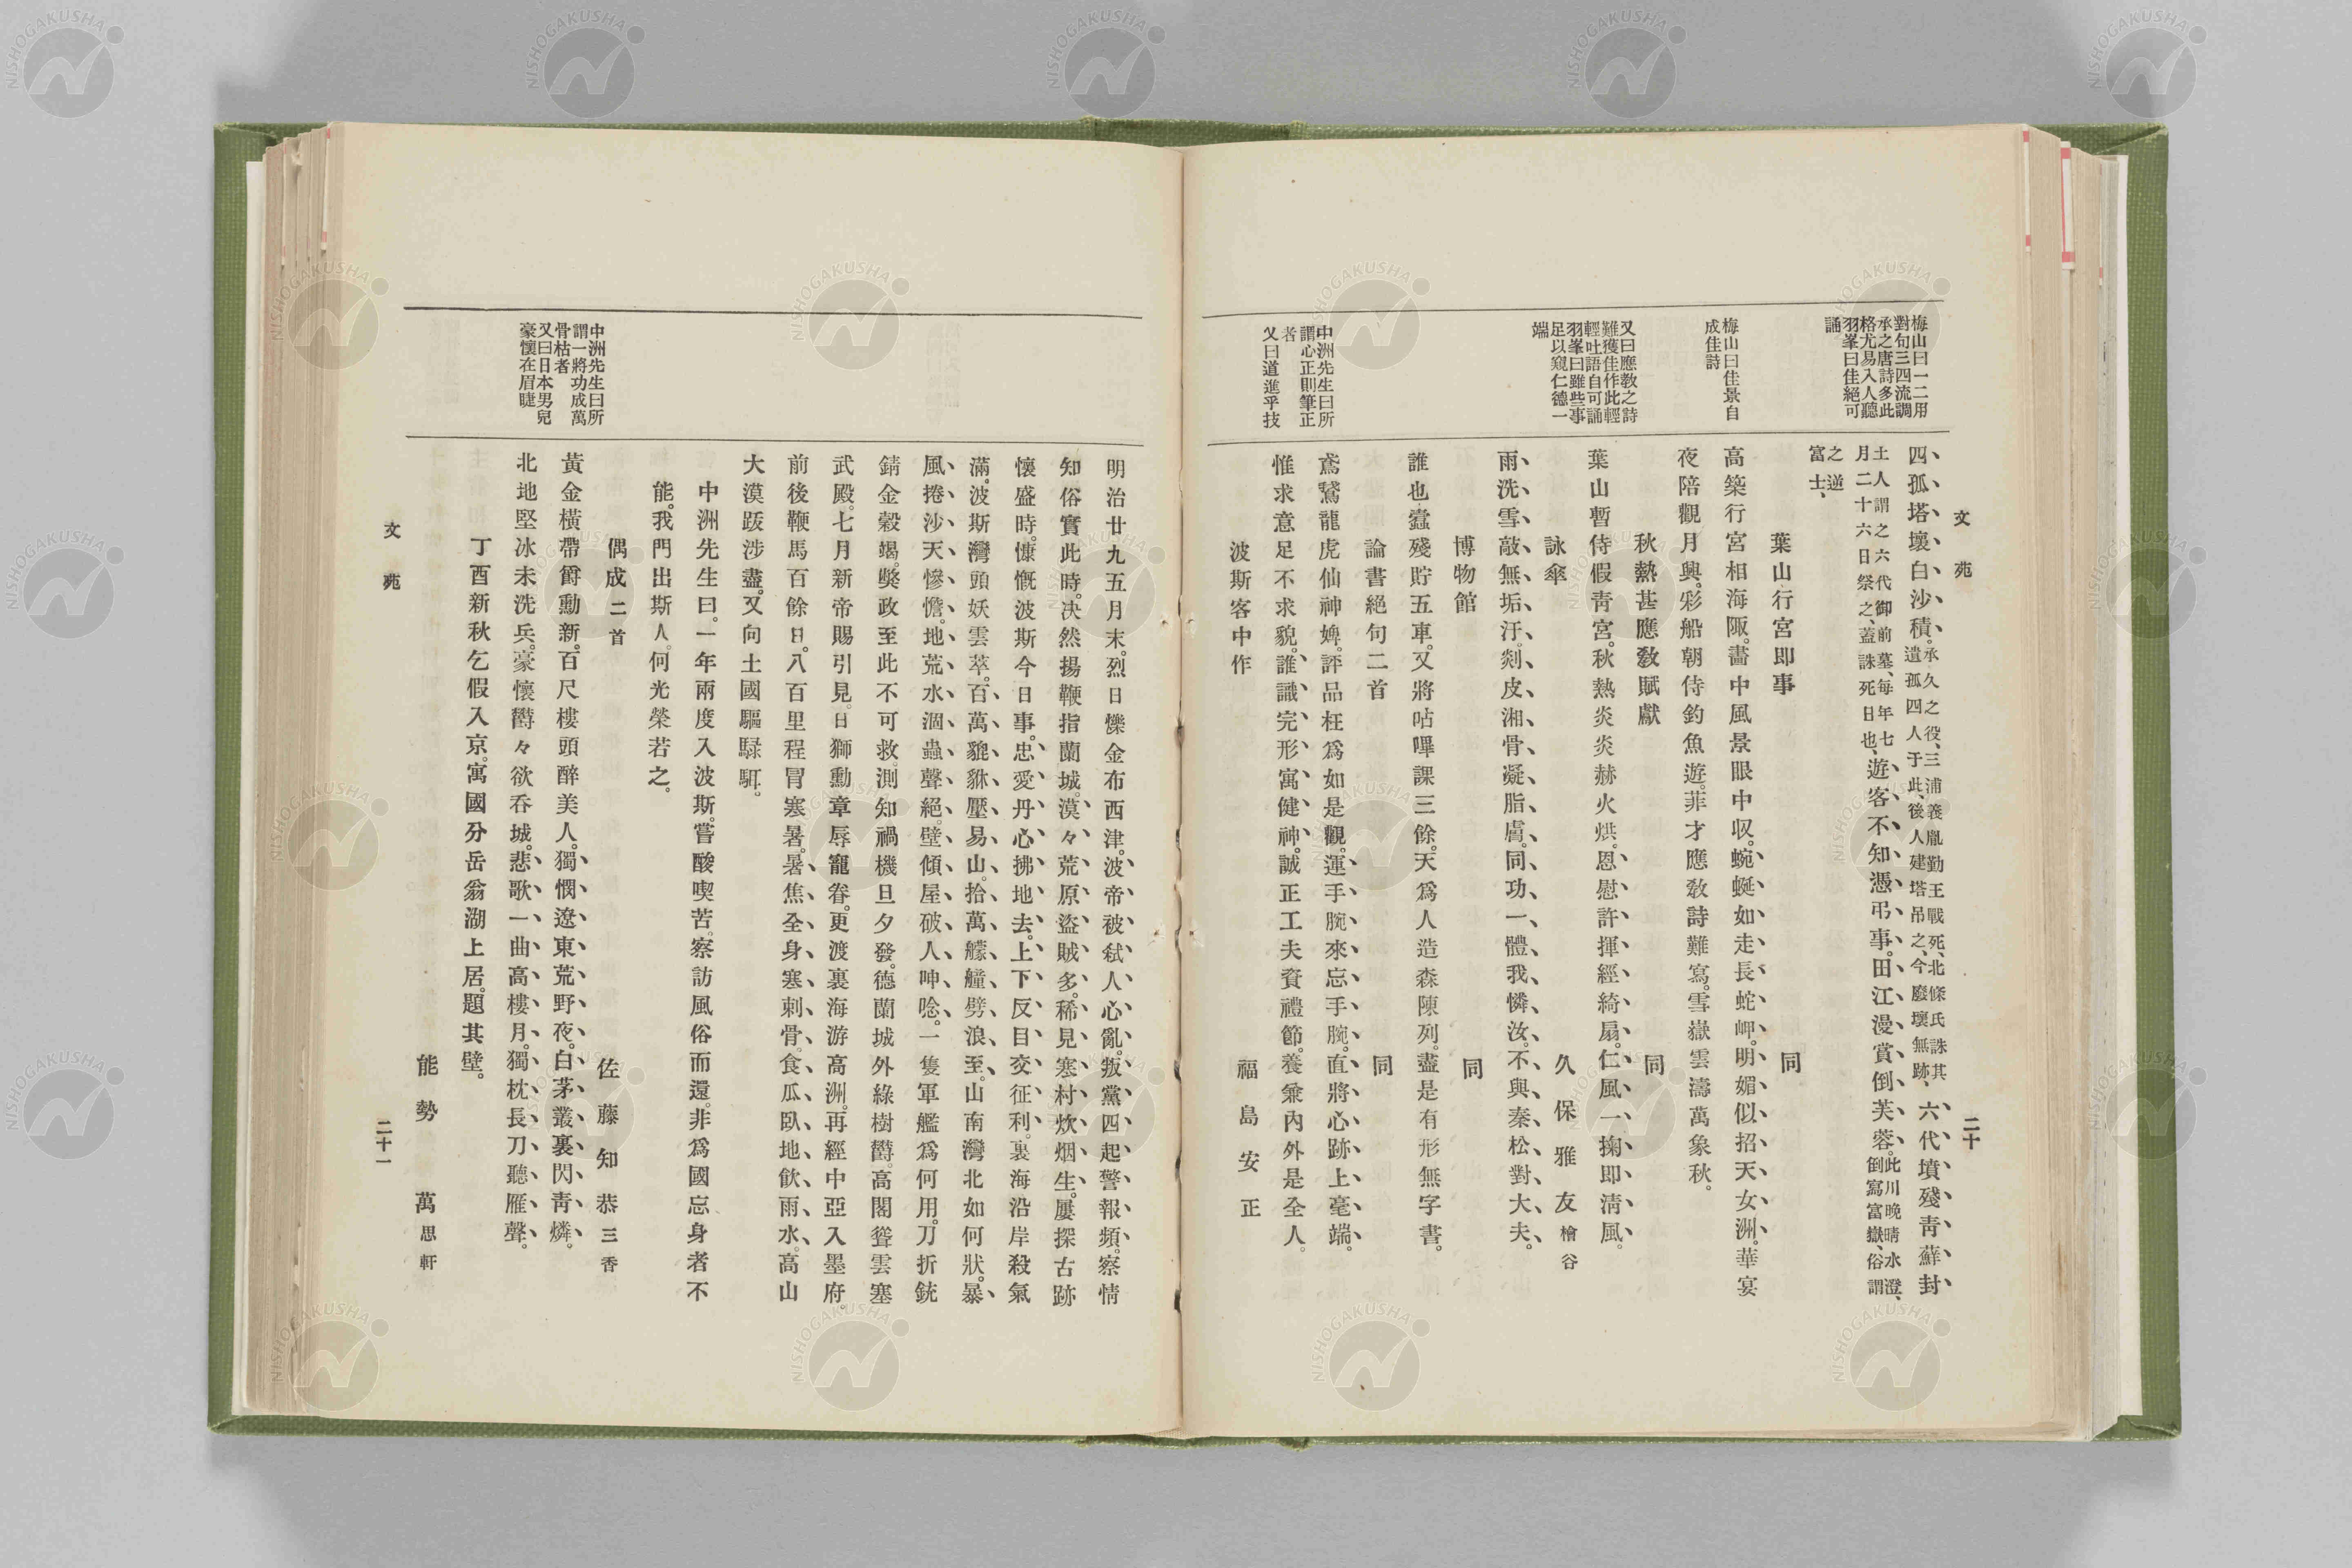 文苑
二十
梅山曰一二用
對句三四流調
承之唐詩多此
格尤易入人聽
羽峯曰佳絕可
誦
梅山曰佳景自
成佳詩
又曰應教之詩
難獲佳作此輕
輕吐語自可誦
羽峯曰雖些事
足以窺仁德一
端
中洲先生曰所
謂心正則筆正
者
又曰道進乎技
四、孤、塔、壞、白、沙、積、。承久之役、三浦義胤勤王戰死、北條氏誅其
遺孤四人于此、後人建塔吊之、今廢壞無跡、六、代、墳、殘、靑、蘚、封、
土人謂之六代御前墓、每年七
月二十六日祭之、蓋誅死日也、遊、客、不、知、憑、弔、事、。田、江、漫、賞、倒、芙、蓉、。此川晚晴水澄、
倒寫富嶽、俗謂
之逆
富士、
葉山行宮即事　同
高築行宮相海陬。畵中風景眼中収。蜿、蜒、如、走、長、蛇、岬、。明、媚、似、招、天、女、洲、。華宴
夜陪觀月興。彩船朝侍釣魚遊。菲才應敎詩難寫。雪嶽雲濤萬象秋。
秋熱甚應敎賦獻　同
葉山暫侍假靑宮。秋熱炎炎赫火烘。恩、慰、許、揮、經、綺、扇、。仁、風、一、掬、即、淸、風、。
詠傘　久保雅友檜谷
雨、洗、雪、敲、無、垢、汙、。剡、皮、湘、骨、凝、脂、膚、。同、功、一、體、我、憐、汝、。不、與、秦、松、對、大、夫、。
博物館　同
誰也蠹殘貯五車。又將咕嗶課三餘。天爲人造森陳列。盡是有形無字書。
論書絕句二首　同
鳶鷲龍虎仙神婢。評品枉爲如是觀。運、手、腕、來、忘、手、腕、。直、將、心、跡、上、毫、端、。
惟求意足不求貌。誰、識、完、形、寓、健、神、。誠正工夫資禮節。養兼內外是全人。
波斯客中作　福島安正
中洲先生曰所
謂一將功成萬
骨枯者
又曰日本男兒
豪懷在眉睫
明治廿九五月末。烈日爍金布西津。波、帝、被、弑、人、心、亂、。叛、黨、四、起、警、報、頻、。察情
知俗實此時。决然揚鞭指蘭城。漠、々、荒、原、盜、賊、多、。稀、見、寒、村、炊、烟、生、。屢探古跡
懷盛時。慷慨波斯今日事。忠、愛、丹、心、拂、地、去、。上、下、反、目、交、征、利、。裏海沿岸殺氣
滿。波斯灣頭妖雲萃。百、萬、貔、貅、壓、易、山、。拾、萬、艨、艟、劈、浪、至、。山南灣北如何狀。暴、
風、捲、沙、天、慘、憺、。地、荒、水、涸、蟲、聲、絕、。壁、傾、屋、破、人、呻、唸、。一隻軍艦爲何用。刀折銃
錆金穀竭。獘政至此不可救。測知禍機旦夕發。德蘭城外綠樹欝。高閣聳雲塞
武殿。七月新帝賜引見。日獅勳章辱寵眷。更渡裏海游高洲。再經中亞入墨府。
前後鞭馬百餘日。八百里程冐寒暑。暑、焦、全、身、寒、刺、骨、。食、瓜、臥、地、飮、雨、水、。高山
大漠跋涉盡。又向土國驅騄駬。
中洲先生曰。一年兩度入波斯。嘗酸喫苦。察訪風俗而還。非爲國忘身者不
能。我門出斯人。何光榮若之。
偶成二首　佐藤知恭三香
黃金橫帶爵勳新。百尺樓頭醉美人。獨、憫、遼、東、荒、野、夜、。白、茅、叢、裏、閃、靑、燐、。
北地堅冰未洗兵。豪懷欝々欲呑城。悲、歌、一、曲、高、樓、月、。獨、枕、長、刀、聽、雁、聲、。
丁酉新秋乞假入京。寓國分岳翁湖上居。題其壁。
能勢　萬思軒
文苑
二十一